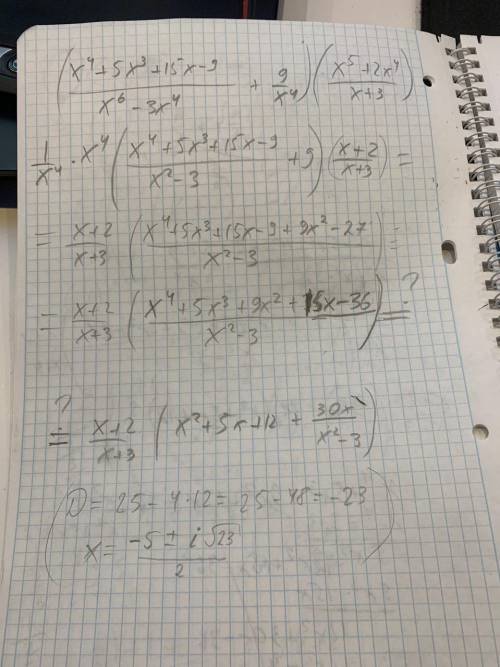 ( (x⁴+5x³+15x-9)/(x⁶-3x⁴) + 9/x⁴ ) ( (x⁵+2x⁴)/(x+3) ) =
1/x⁴ · x⁴ ( (x⁴+5x³+15x-9)/(x²-3) + 9 ) ( (x+2)/(x+3) ) =
= (x+2)/(x+3) ( (x⁴+5x³+15x-9+9x²-27)/(x²-3) ) =
= (x+2)/(x+3) ( (x⁴+5x³+9x²+15x-36)/(x²-3) ) =?
?= (x+2)/(x+3) ( x²+5x+12 + 30x/(x²-3) )
( D = 25 - 4·12 = 25 - 48 = -23
x = (-5 ± i√23)/2 )